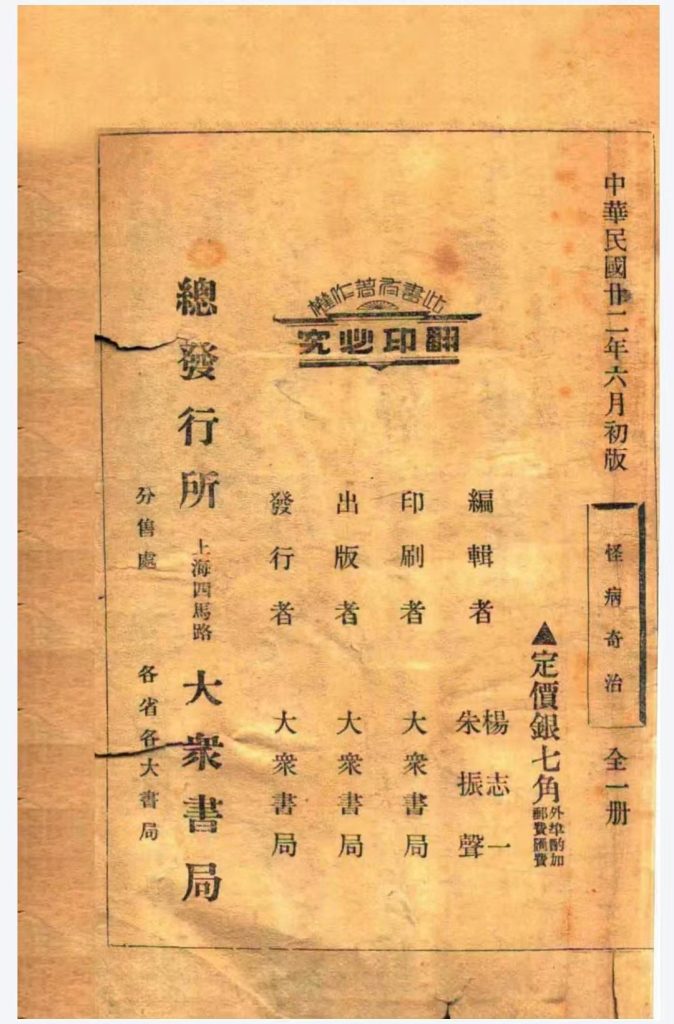 中華民國廿二年六月初版
怪病奇治
全一册
▲定價銀七角
外埠酌加
郵費匯費
編輯者
楊志一
朱振聲
印刷者 大衆書局
出版者 大衆書局
發行者 大衆書局
此書有著作權
翻印必究
總發行所 上海四馬路 大衆書局
分售處 各省各大書局